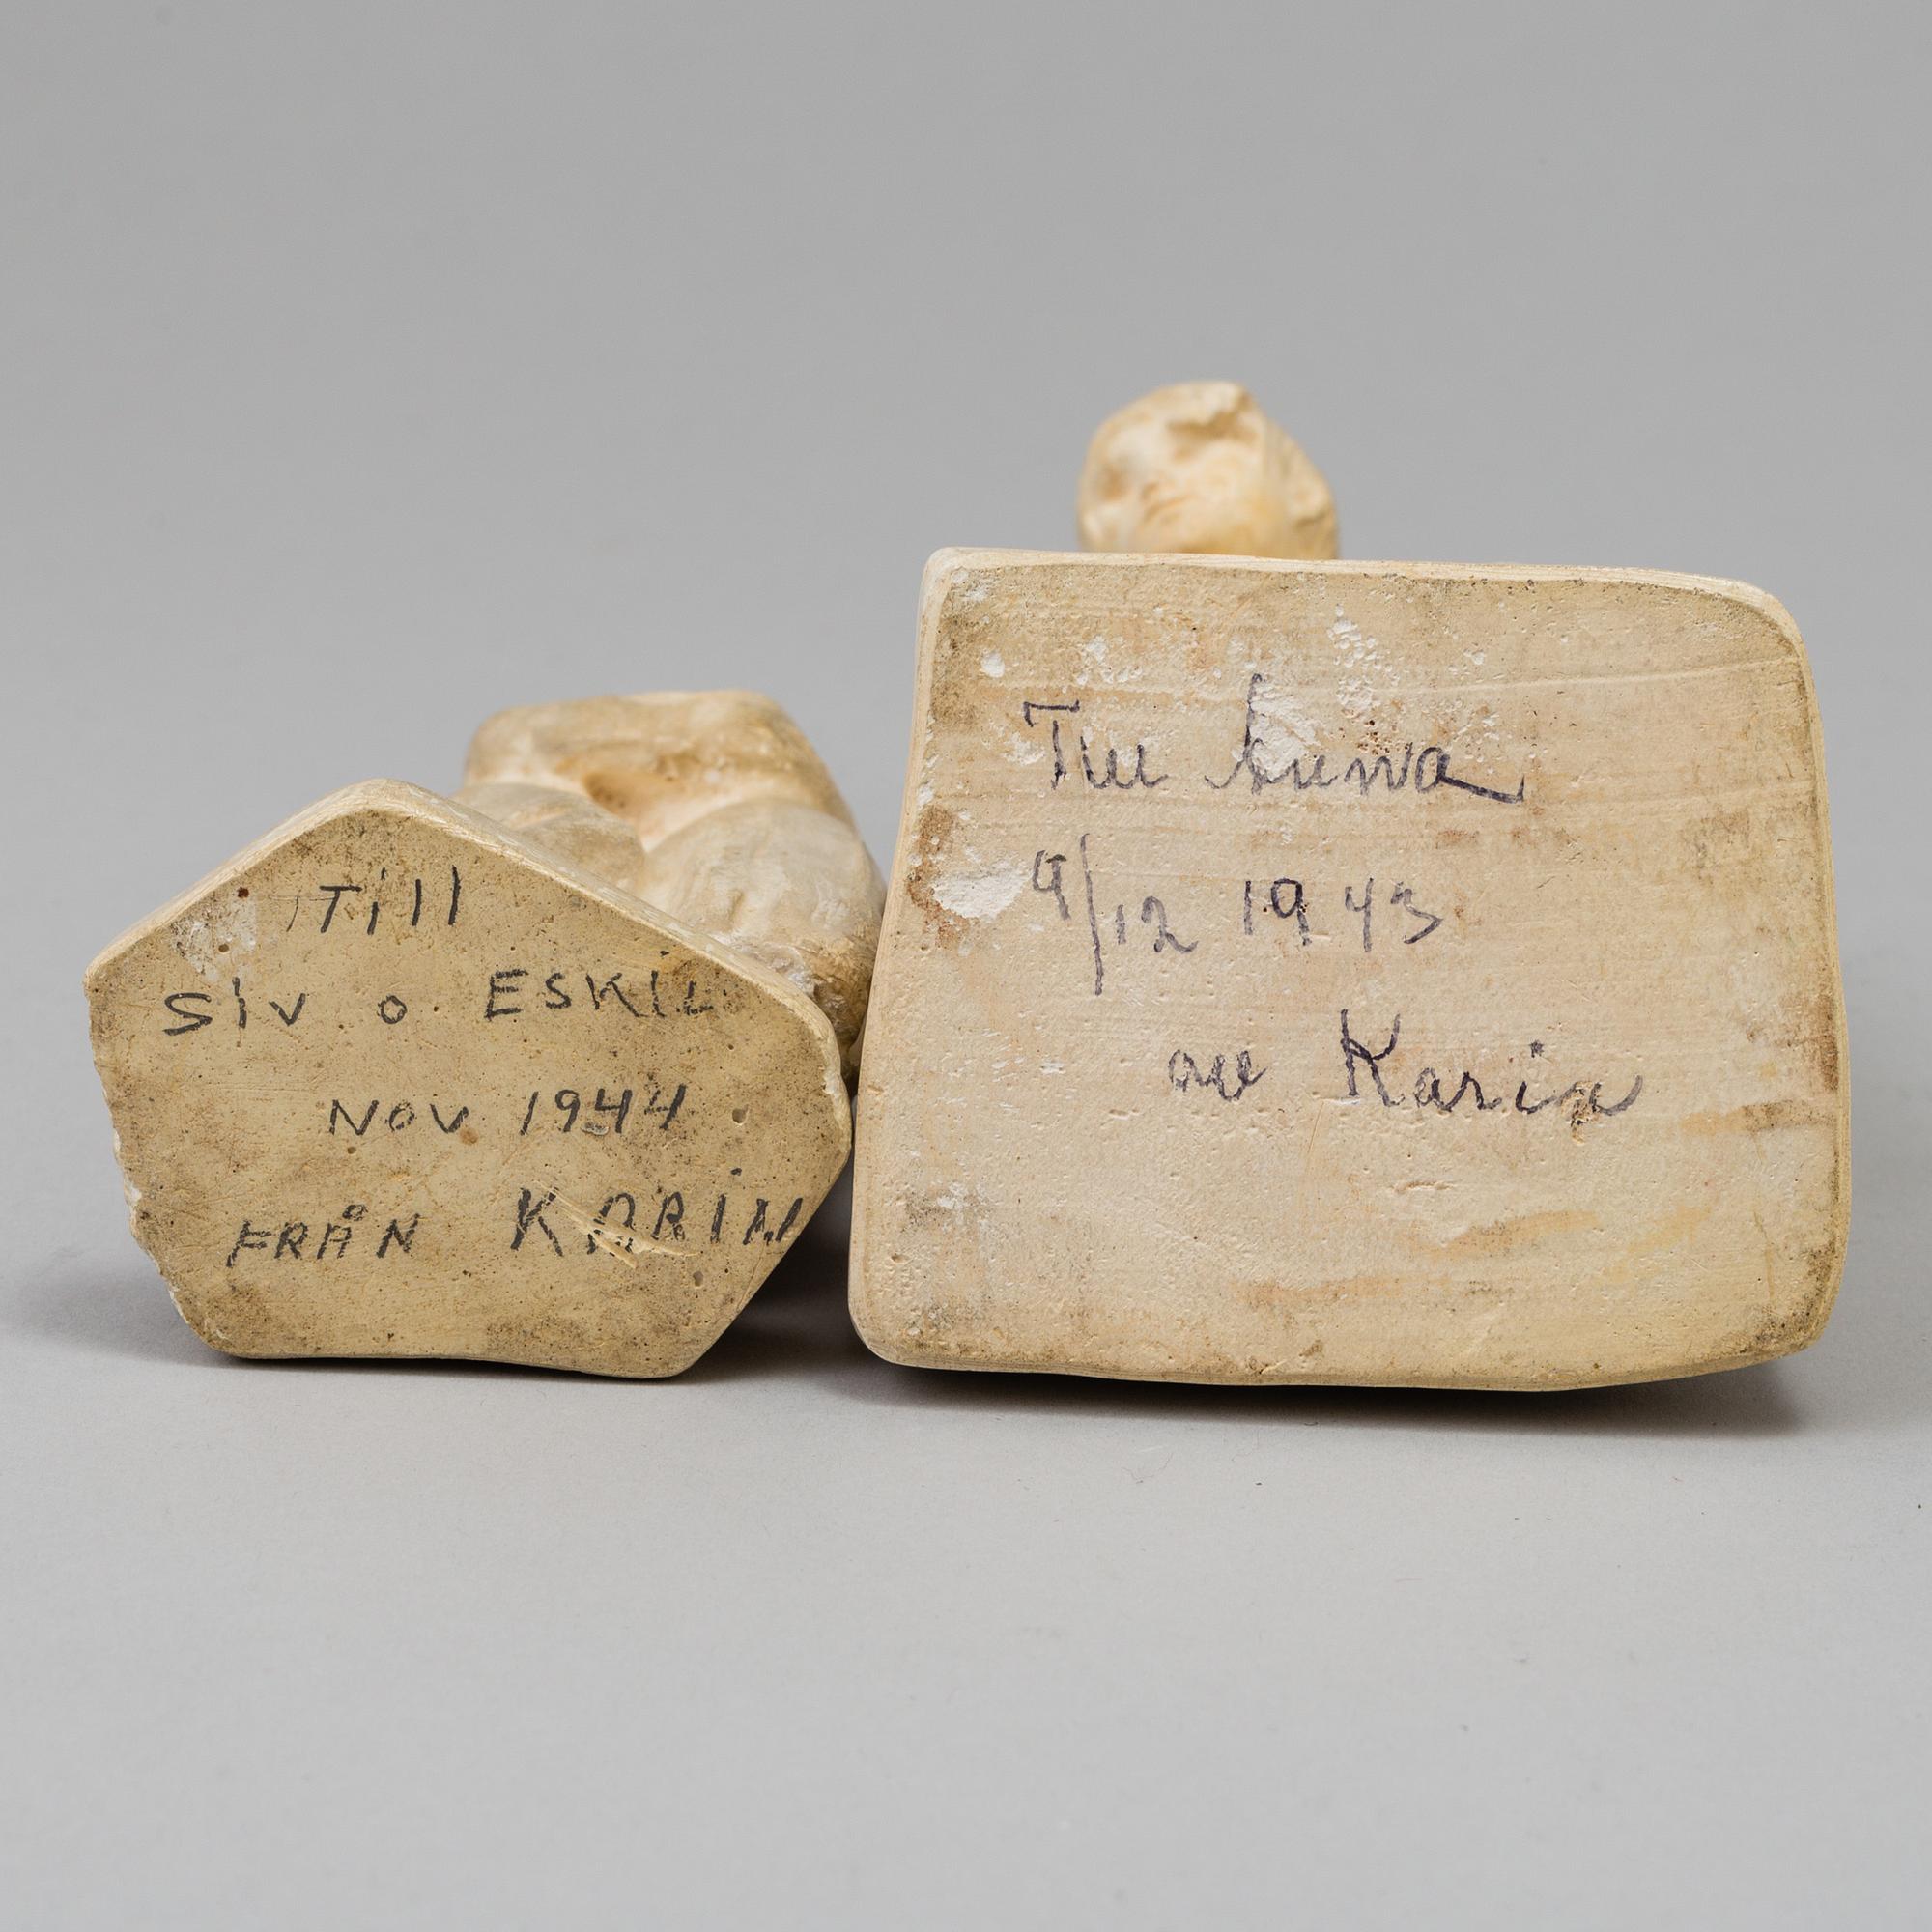 Till
SIV O ESKIL
NOV 1944
FRÅN KARIN
Till
9/12 1943
av Karin